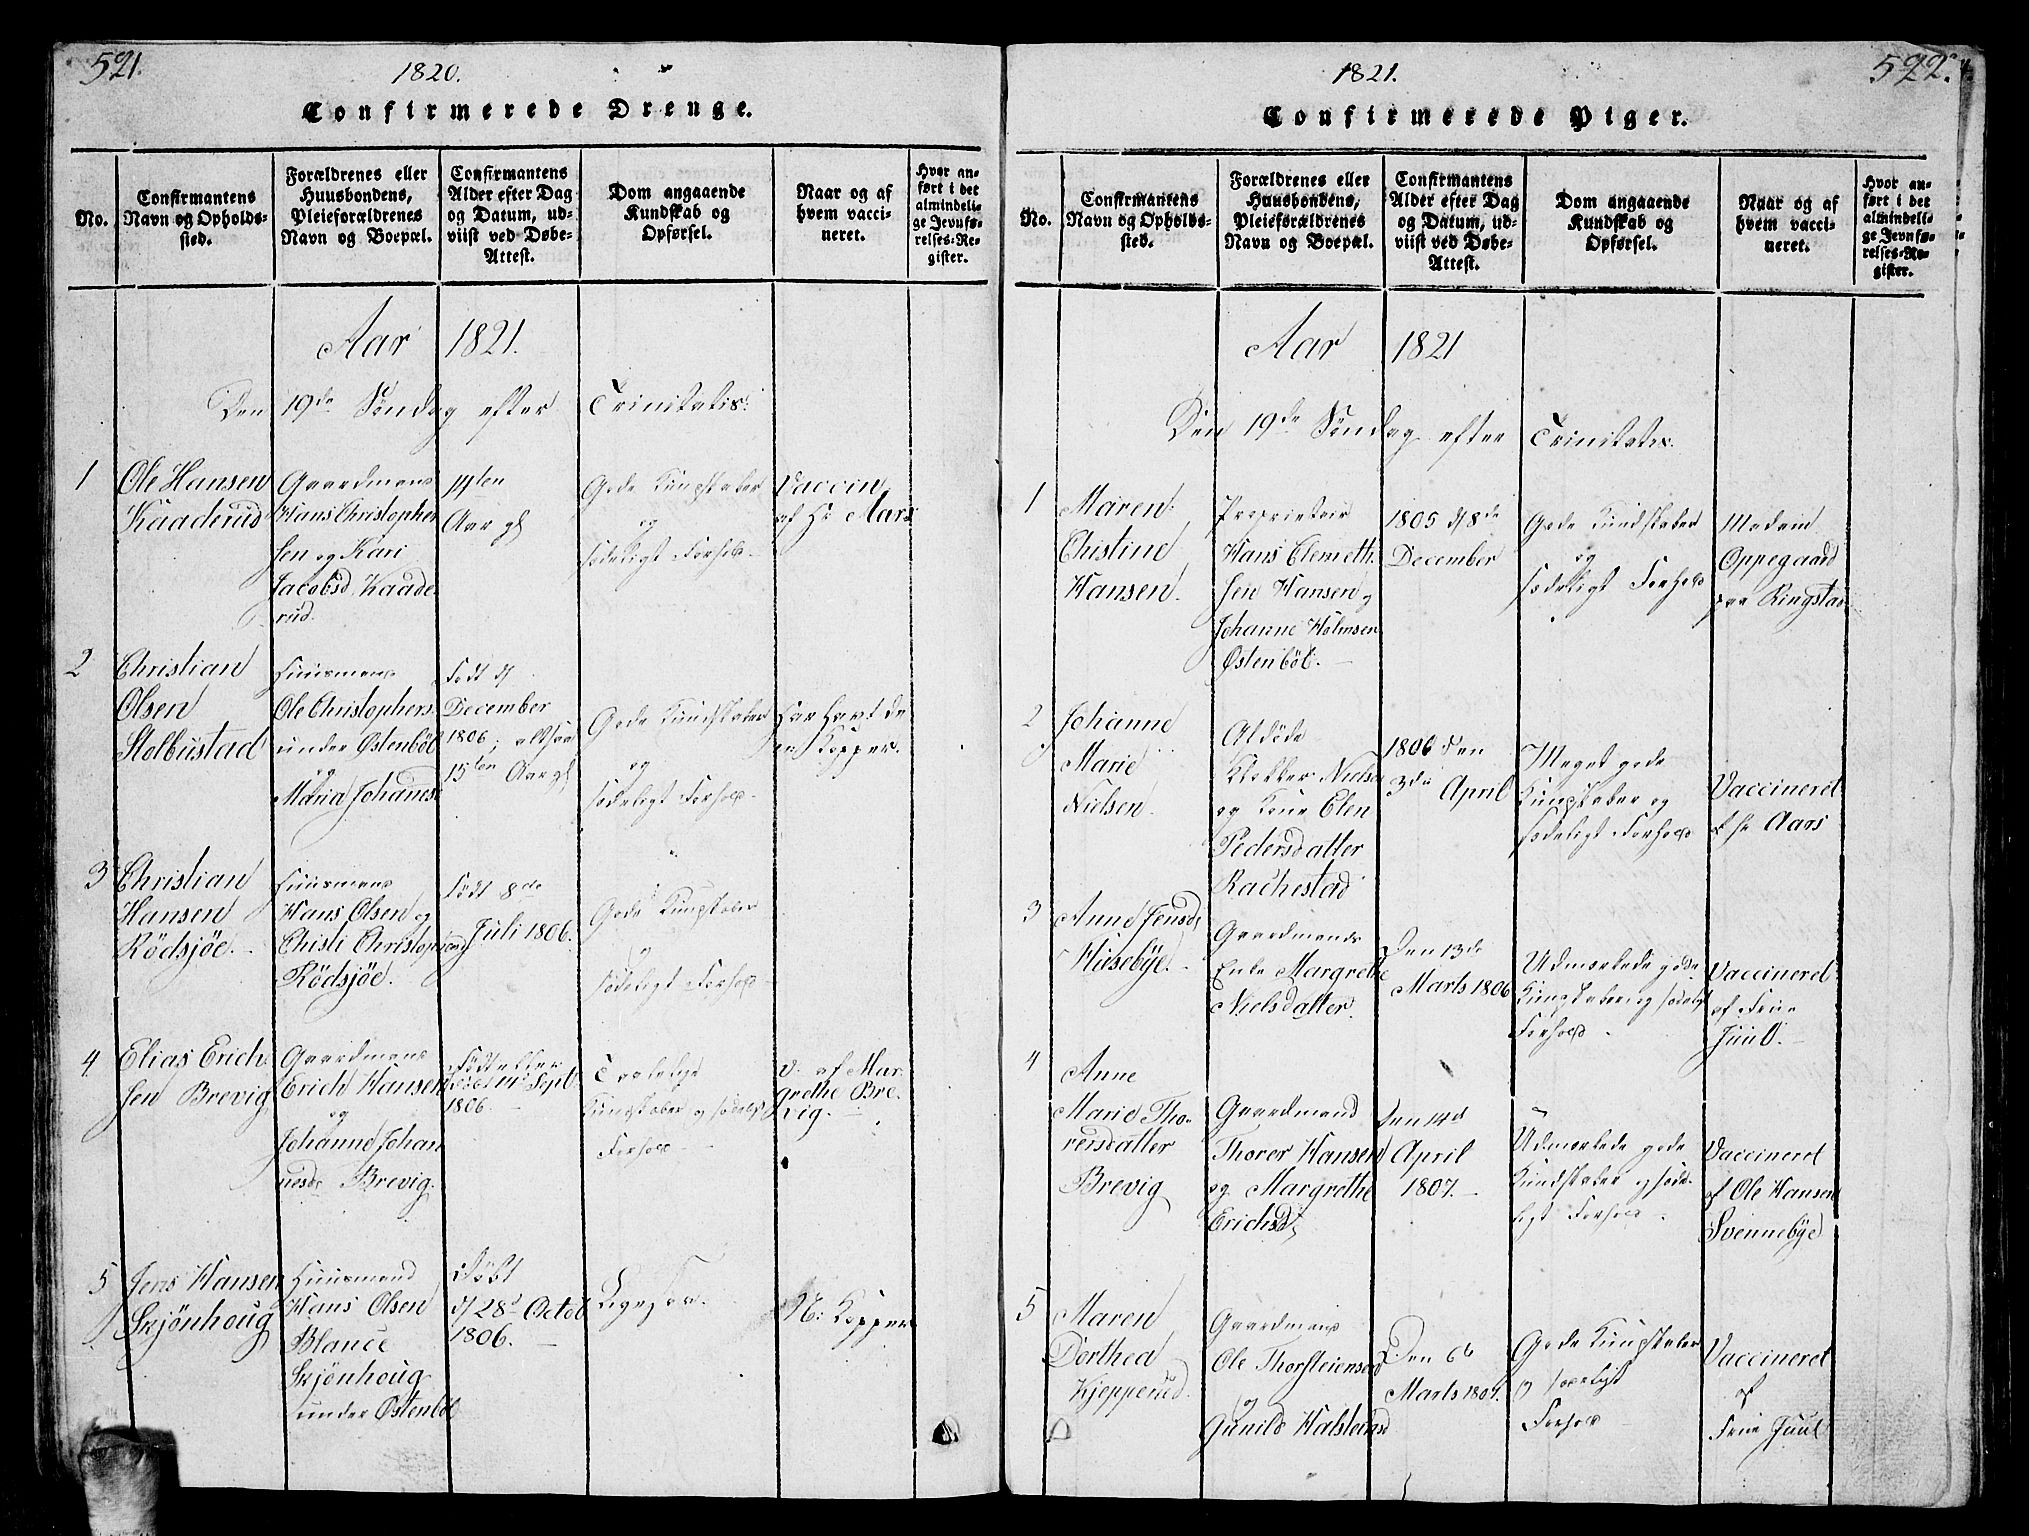 521.
1820.
Confirmerede Drenge.
No.
Confirmantens
Navn og Opholds-
sted.
Forældrenes eller
Huusbondens,
Pleieforældrenes
Navn og Boepæl.
Confirmantens
Alder efter Dag
og Datum, ud-
viist ved Døbe-
Attest.
Dom angaaende
Kundskab og
Opførsel.
Naar og af
hvem vacci-
neret.
Hvor an-
ført i det
almindeli-
ge Jevnfø-
relses-Re-
gister.
Aar 1821.
Den 19de Søndag efter Trinitatis.
1
Ole Hansen
Kaaderud
Gaardmand
Hans Christopher
sen og Kari
Jacobsd. Kaade
rud.
14ten
Aar gl
Gode Kundskaber
og
sædeligt Forhold
Vaccin.
af Hr Aars
2
Christian
Olsen
Stolbustad
Huusmand
Ole Christophers.
under Østenböl
og
Maria Johannesd
Født d
December
1806; altsaa
15ten Aar gl
Gode Kundskaber
og
sædeligt Forhold
Har havt de
Kopper.
3
Christian
Hansen
Rödsjöe.
Huusmand
Hans Olsen og
Christi Christophersd
Rödsjöe.
Født 8de
Juli 1806.
Gode Kundskaber
og
sædeligt Forhold
4
Elias Erich
sen Brevig
Gaardmand
Erich Hansen
og
Johanne Johan
nesd. Brevig.
Født eller
döbt 14 Septb
1806.
Taalelige
Kundskaber og sædeligt
Forhold
v. af Mar
grethe Bre
vig.
5
Jens Hansen
Skjönhoug
Huusmand
Hans Olsen
Blance
Skjönhoug
under Østenböl
Döbt
d 28d Octob
1806.
Ligesom
N: Kopper
522.
1821.
Confirmerede Piger.
No.
Confirmantens
Navn og Opholds-
sted.
Forældrenes eller
Huusbondens,
Pleieforældrenes
Navn og Boepæl.
Confirmantens
Alder efter Dag
og Datum, ud-
viist ved Døbe-
Attest.
Dom angaaende
Kundskab og
Opførsel.
Naar og af
hvem vacci-
neret.
Hvor an-
ført i det
almindeli-
ge Jevnfø-
relses-Re-
gister.
Aar 1821
Den 19de Søndag efter Trinitatis.
1
Maren
Christine
Hansen.
Proprietair
Hans Clemeth
sen Hansen og
Johanne Holmsen
Østenböl.
1805 d 8de
December
Gode Kundskaber
og
sædeligt Forhold
Madam
Oppegaard
paa Ringstad
2
Johanne
Marie
Nielsen.
Afdöde
Klokker Nielsen
og Kone Elen
Pedersdatter
Rachestad
1806 den
3de April
Meget gode
Kundskaber og
sædeligt Forhold
Vaccineret
af Hr Aars
3
Anne Jensd
Husebÿe.
Gaardmands
Enke Margrethe
Nielsdatter.
Den 13de
Marts 1806
Udmærkede gode
Kundskaber og sædeligt
Forhold
Vaccineret
af Frue
Juul.
4
Anne
Marie Tho-
rersdatter
Brevig
Gaardmand
Thorer Hansen
og Margrethe
Erichsd.
Den 14d
April
1807.
Udmærkede gode
Kundskaber og sæde-
ligt Forhold
Vaccineret
af Ole Hansen
Svennebye
5
Maren
Dorthea
Kjepperud.
Gaardmand
Ole Thorsteiensen
og
Gunild Halsteinsd
Den 6te
Marts 1807.
Gode Kundskaber
og sædeligt
Forhold
Vaccineret
af
Frue Juul